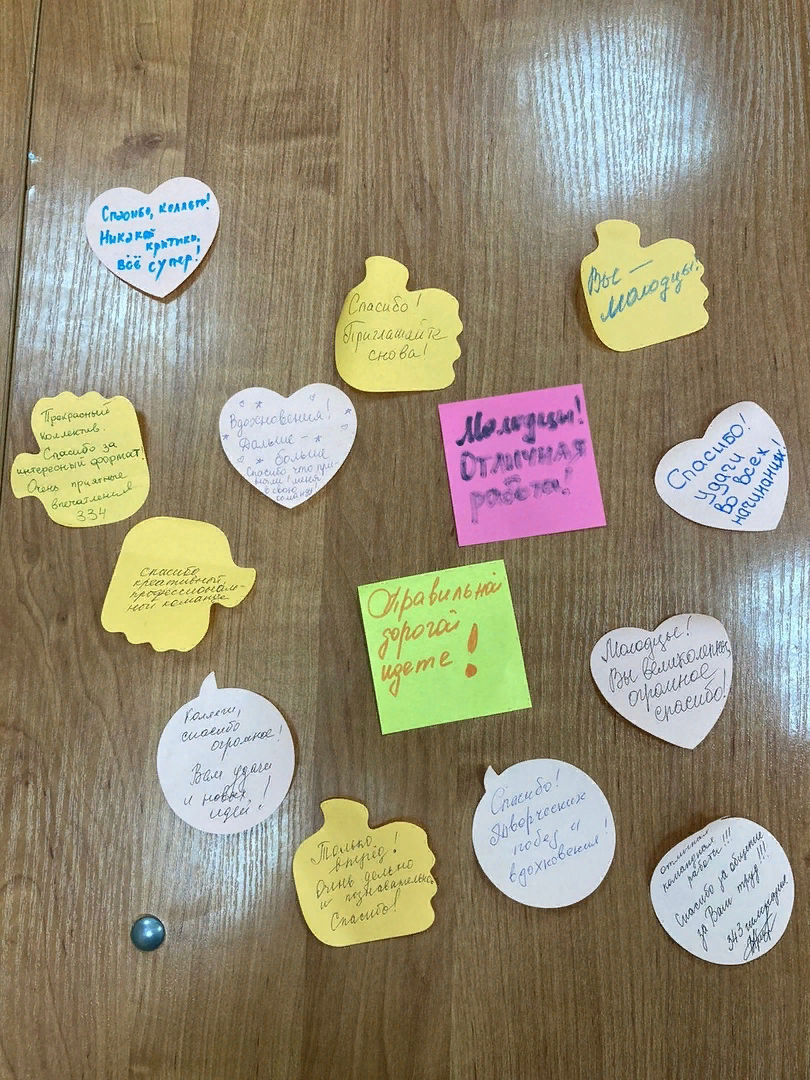 Спасибо, коллеги!
Никакой
критики,
всё супер!
Спасибо!
Приглашайте
снова!
Вы —
молодцы!
Прекрасный
коллектив.
Спасибо за
интересный формат!
Очень приятные
впечатления
334
Вдохновения!
Дальше —
больше
Спасибо что при-
няли меня
в свою
Молодцы!
Отличная
работа!
Спасибо!
Удачи
во всех
начинаниях!
Спасибо
креативной,
профессионал-
ной команде
Правильной
дорогой
идете!
Молодцы!
Вы великолепны,
огромное
спасибо!
Коллеги,
спасибо
огромное!
Вам удачи
и новых
идей!
Только
вперёд!
Очень дельно
и познавательно
Спасибо!
Спасибо!
Творческих
побед и
вдохновения!
отличная
командная
работа!!!
Спасибо за общение
за Ваш труд!!!
343